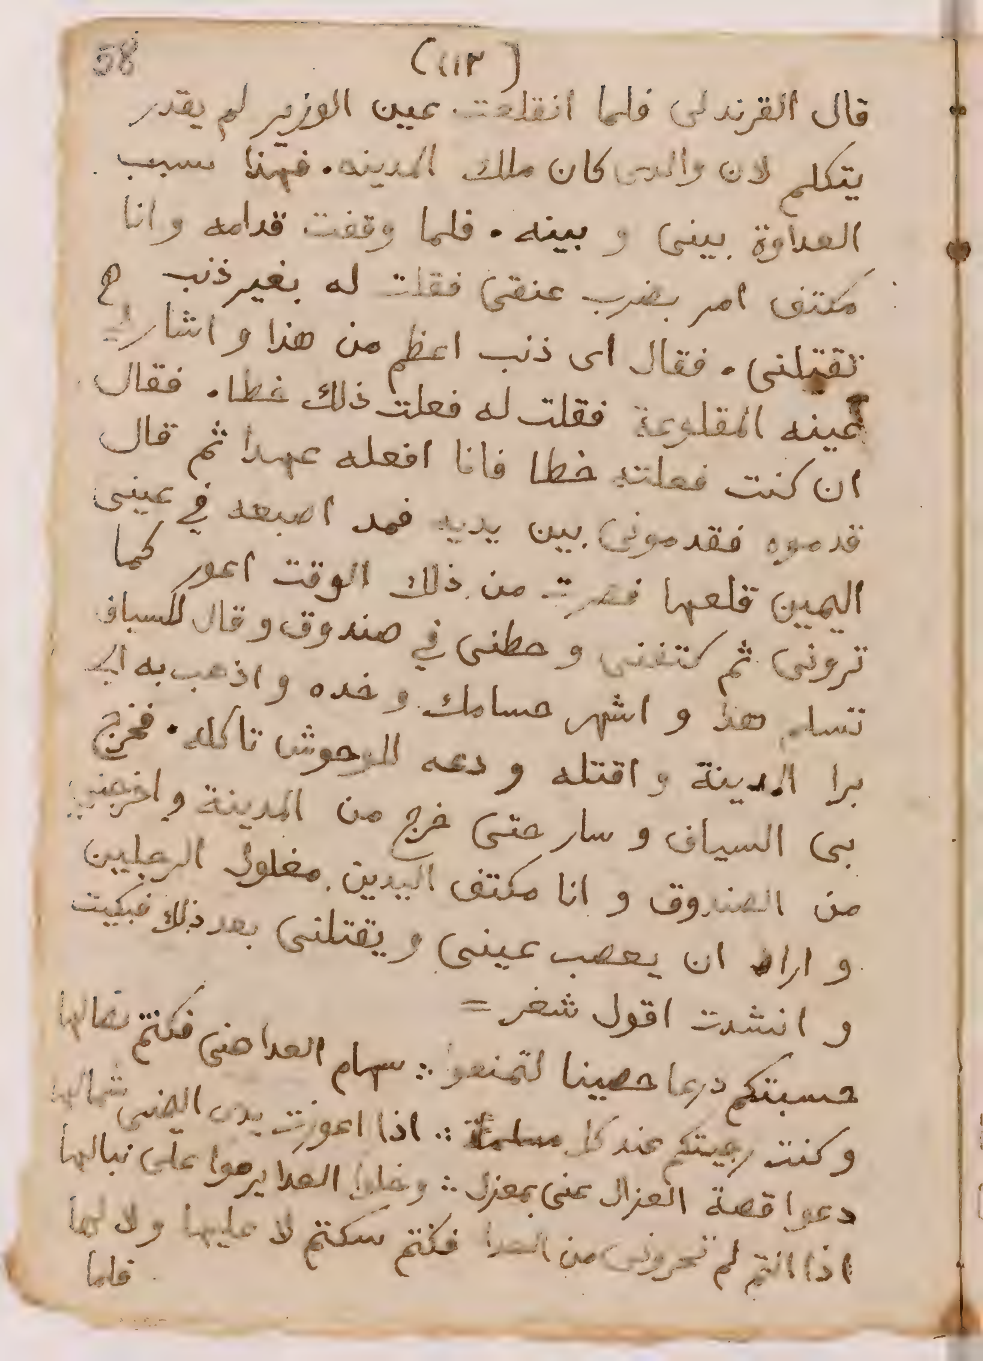 58
(١١٣)
قال القرندلى فلما انقلعت عين الوزير لم يقدر
يتكلم لان والدى كان ملك المدينه. فهذا سبب
العداوة بينى و بينه. فلما وقفت قدامه وانا
مكتف امر بضرب عنقى فقلت له بغير ذنب
تقتلنى. فقال اى ذنب اعظم من هذا و اشار
عينه المقلوعة فقلت له فعلت ذلك خطا. فقال
ان كنت فعلته خطا فانا افعله عمدا ثم قال
قدموه فقدمونى بين يديه فمد اصبعه في عينى
اليمين قلعها فصرت من ذلك الوقت اعور كما
ترونى ثم كتفنى و حطنى في صندوق وقال للسياف
تتسلم هذا و اشهر حسامك وخده واذهب به الى
برا المدينة و اقتله و دعه للوحوش تاكله. فخرج
بى السياف و سار حتى خرج من المدينة واخرجنى
من الصندوق و انا مكتف اليدين مغلول الرجلين
و اراد ان يعصب عينى ويقتلنى بعد ذلك فبكيت
و انشدت اقول شعر =
حسبتكم درعا حصينا لتمنعوا ∴ سهام العدا عنى فكنتم نصالها
وكنت رجيتكم عند كل ∴ اذا اعوزت يدى اليمنى شمالها
دعوا قصة العزال عنى بمعزل ∴ وخلوا العدا يرموا على نبالها
اذا انتم لم من العدا فكنتم سكتم لا عليها ولا لها
فلما